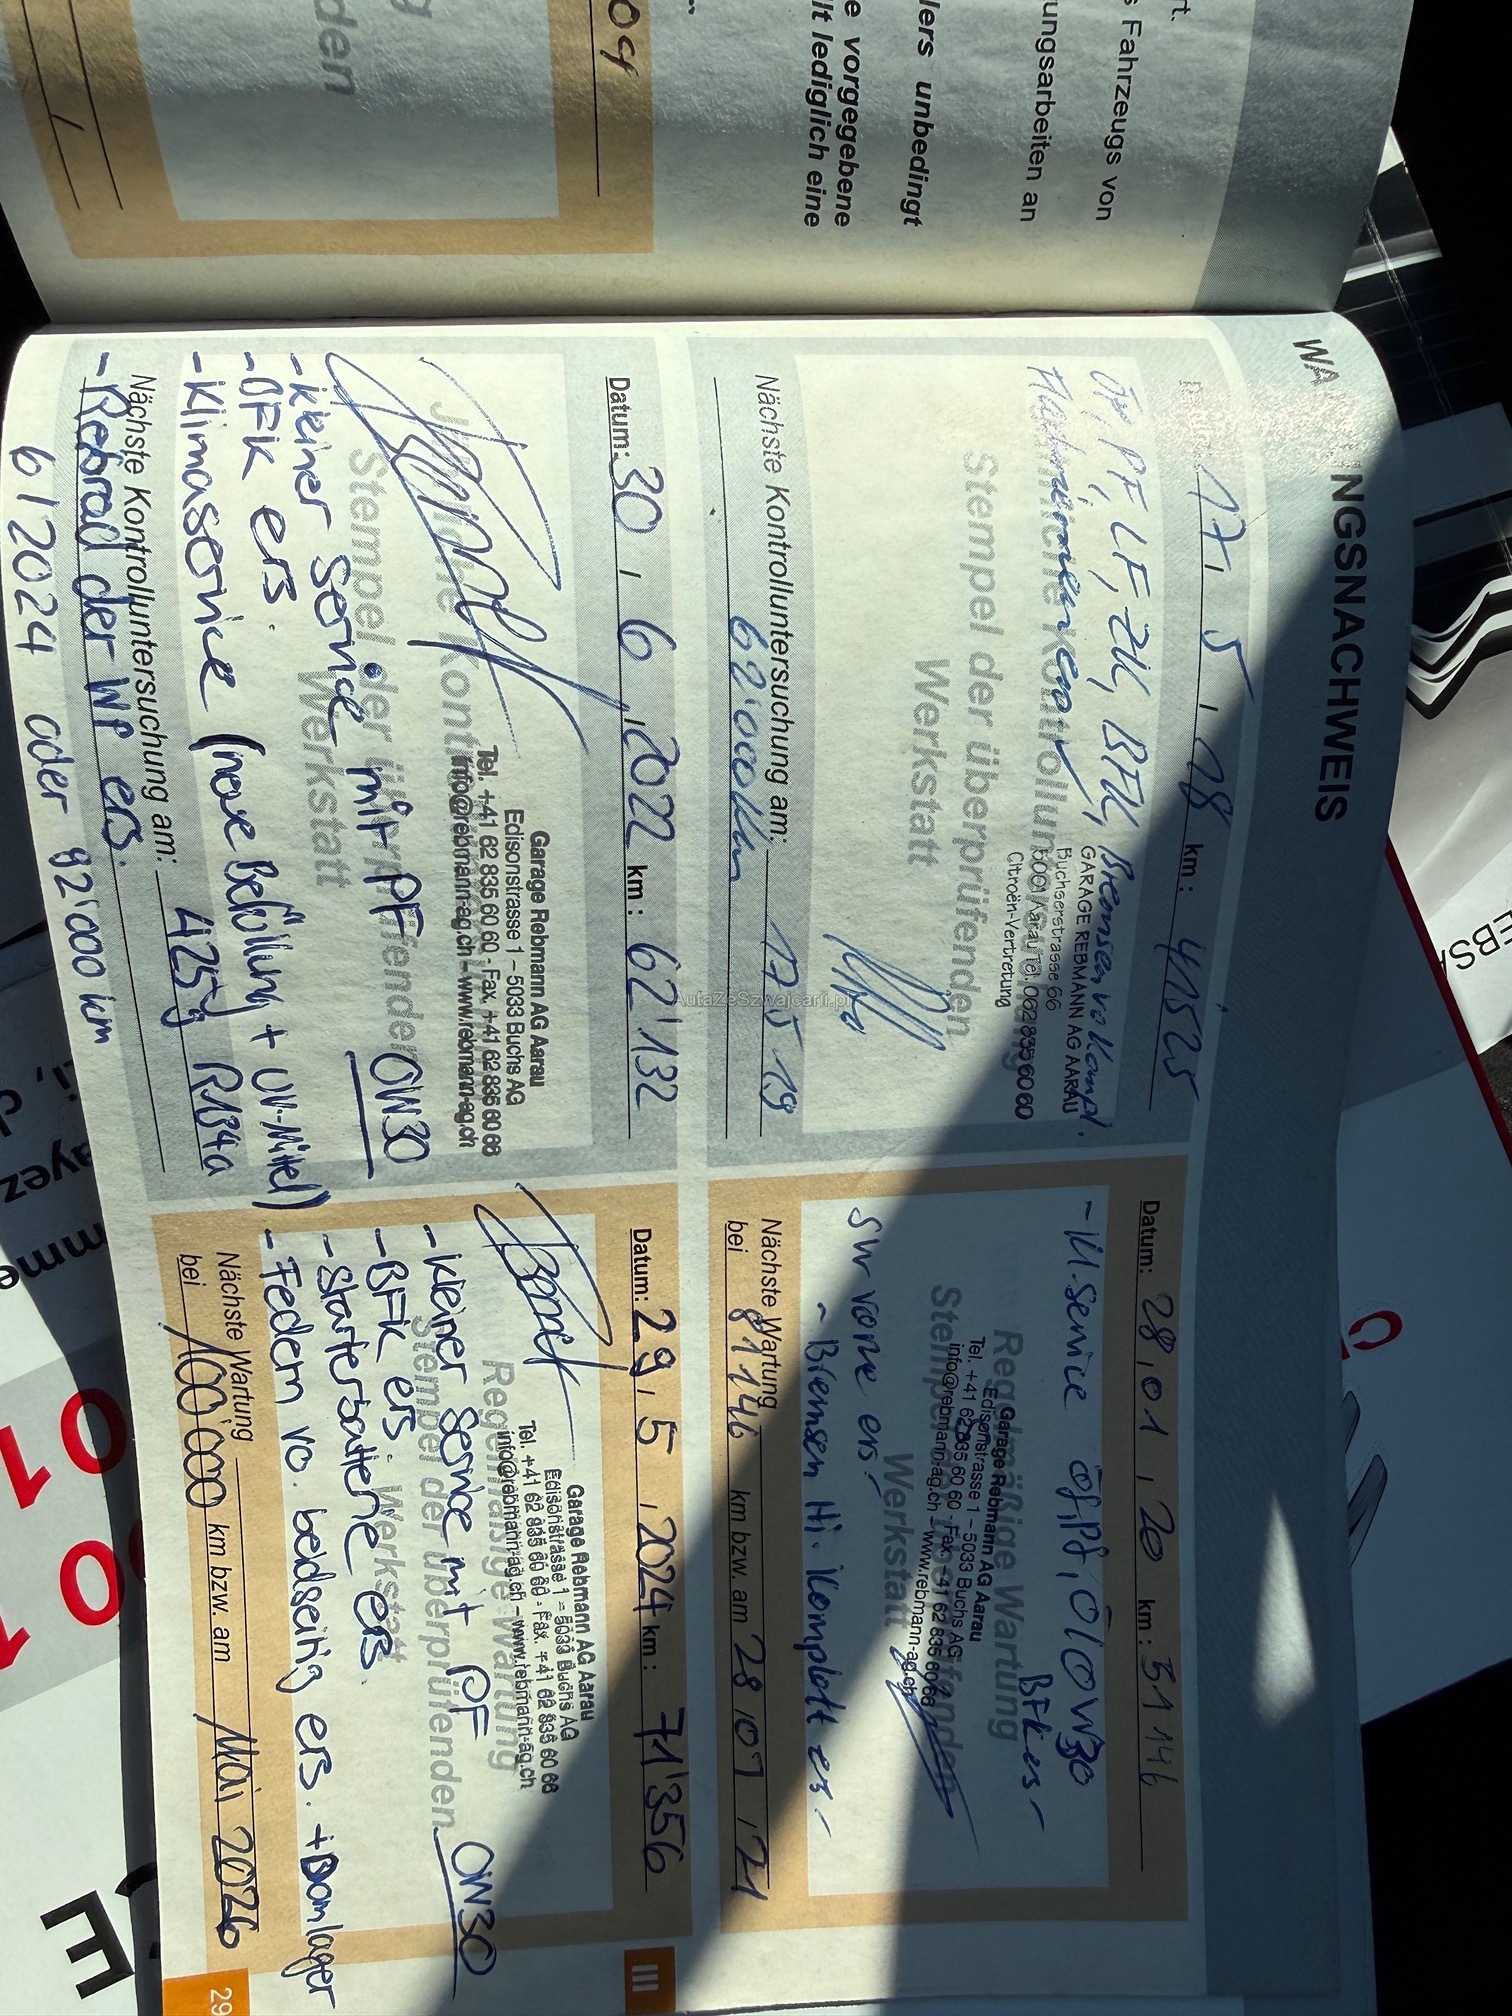 WA NGSNACHWEIS
17. 5. 18 km: 41525
ÖF, PF, LF, ZK, BFK, Bremsen vo kompl.
GARAGE REBMANN AG AARAU
Buchserstrasse 66
5001 Aarau Tel. 062 835 60 60
Citroën-Vertretung
Stempel der überprüfenden
Werkstatt
Nächste Kontrolluntersuchung am: 17.5.19
62'000km
Datum: 28.01.20 km: 51146
- Kl. Service ÖF, Pf, Öl 0W30
BFK ers -
Regelmäßige Wartung
Stempel der überprüfenden
Werkstatt
Garage Rebmann AG Aarau
Edisonstrasse 1 – 5033 Buchs AG
Tel. +41 62 835 60 60 - Fax. +41 62 835 60 66
info@rebmann-ag.ch – www.rebmann-ag.ch
SW vorne ers -
- Bremsen Hi. komplett ers -
Nächste Wartung
bei 81146 km bzw. am 28.07.21
Datum: 30.6.2022 km: 62'132
Garage Rebmann AG Aarau
Edisonstrasse 1 – 5033 Buchs AG
Tel. +41 62 835 60 60 - Fax. +41 62 835 60 66
info@rebmann-ag.ch – www.rebmann-ag.ch
Stempel der überprüfenden
Werkstatt
- Kleiner Service mit PF 0W30
- BFK ers.
- Klimaservice (neue Befüllung + UV-Mittel)
425g R134a
Nächste Kontrolluntersuchung am:
- Riebrad der WP ers.
6/2024 oder 92'000 km
Datum: 29.5.2024 km: 71'356
Garage Rebmann AG Aarau
Edisonstrasse 1 – 5033 Buchs AG
Tel. +41 62 835 60 60 - Fax. +41 62 835 60 66
info@rebmann-ag.ch – www.rebmann-ag.ch
Regelmäßige Wartung
Stempel der überprüfenden
Werkstatt
- Kleiner Service mit PF 0W30
- BFK ers.
- Starterbatterie ers.
- Federn vo. beidseitig ers. + Domlager
Nächste Wartung
bei 100'000 km bzw. am Mai 2026
III
29
rt.
s Fahrzeugs von
ungsarbeiten an
lers unbedingt
e vorgegebene
lt lediglich eine
den
AutaZeSzwajcarii.pl